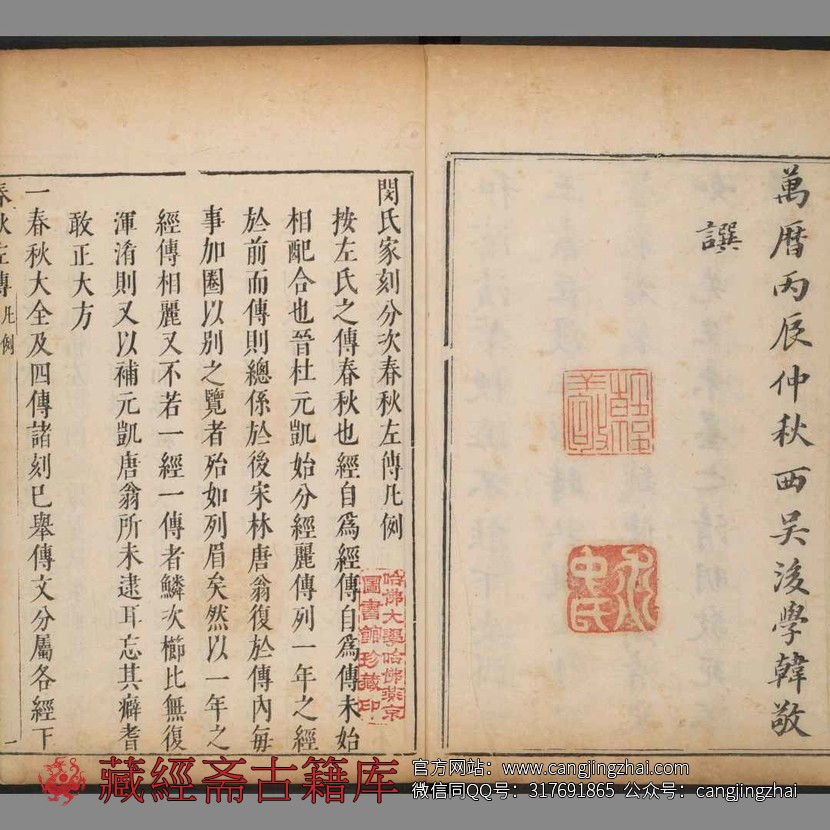 萬曆丙辰仲秋西吳後學韓敬
譔
韓敬
閔氏家刻分次春秋左傳凡例
按左氏之傳春秋也經自爲經傳自爲傳未始
相配合也晉杜元凱始分經麗傳列一年之經
於前而傳則總係於後宋林唐翁復於傳內每
事加圈以別之覽者殆如列眉矣然以一年之
經傳相麗又不若一經一傳者鱗次櫛比無復
渾淆則又以補元凱唐翁所未逮耳忘其癖耆
敢正大方
一春秋大全及四傳諸刻已舉傳文分屬各經下
春秋左傳 凡例 一
哈佛大學哈佛燕京
圖書館珍藏印
藏經斋古籍库
官方网站：www.cangjingzhai.com
微信同QQ号：317691865 公众号：cangjingzhai